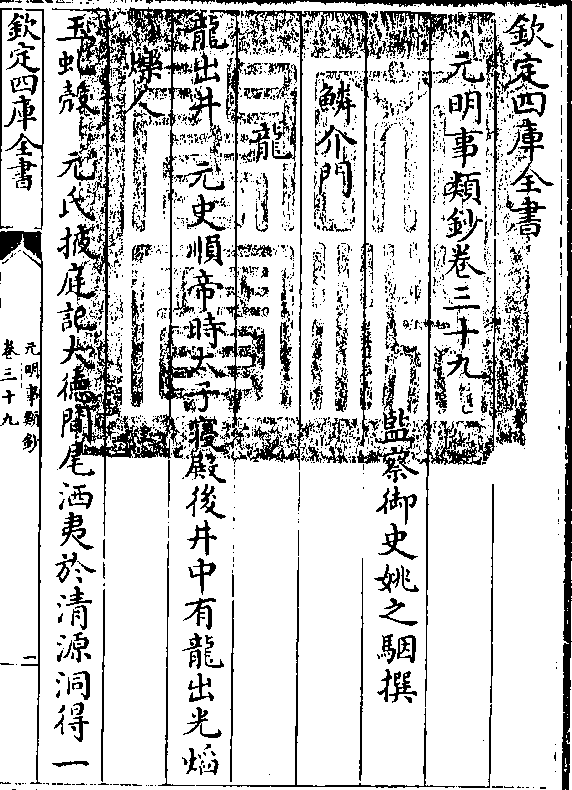 欽定四庫全書
元明事類鈔卷三十九
監察御史姚之駰撰
鱗介門
龍
龍出井　元史順帝時太子寢殿後井中有龍出光熖
爍人
玉虵殼　元氏掖庭記大德間尾洒夷於清源洞得一
欽定四庫全書
元明事類鈔
卷三十九
一